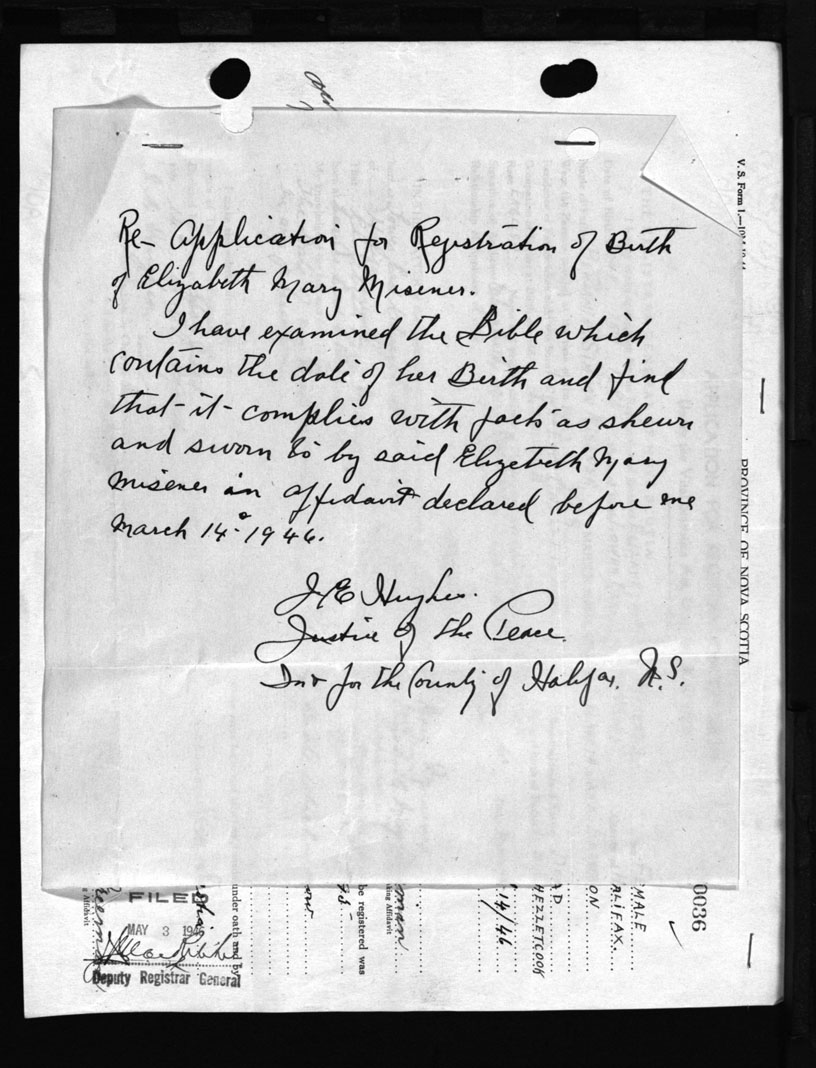 Re- Application for Registration of Birth
of Elizabeth Mary Misener.
I have examined the Bible which
contains the date of her Birth and find
that it complies with facts as shewn
and sworn to by said Elizebeth Mary
Misener in affidavit declared before me
March 14th 1946.
J E Hughes.
Justice of the Peace.
In & for the County of Halifax. N.S.
V. S. Form 1.
PROVINCE OF NOVA SCOTIA
0036
MALE
ALIFAX
ON
HEZZETCOOK
14/46
man
king Affidavit
be registered was
75-
ow
under oath and by
FILED
MAY 3 194
Deputy Registrar General
g Affidavit